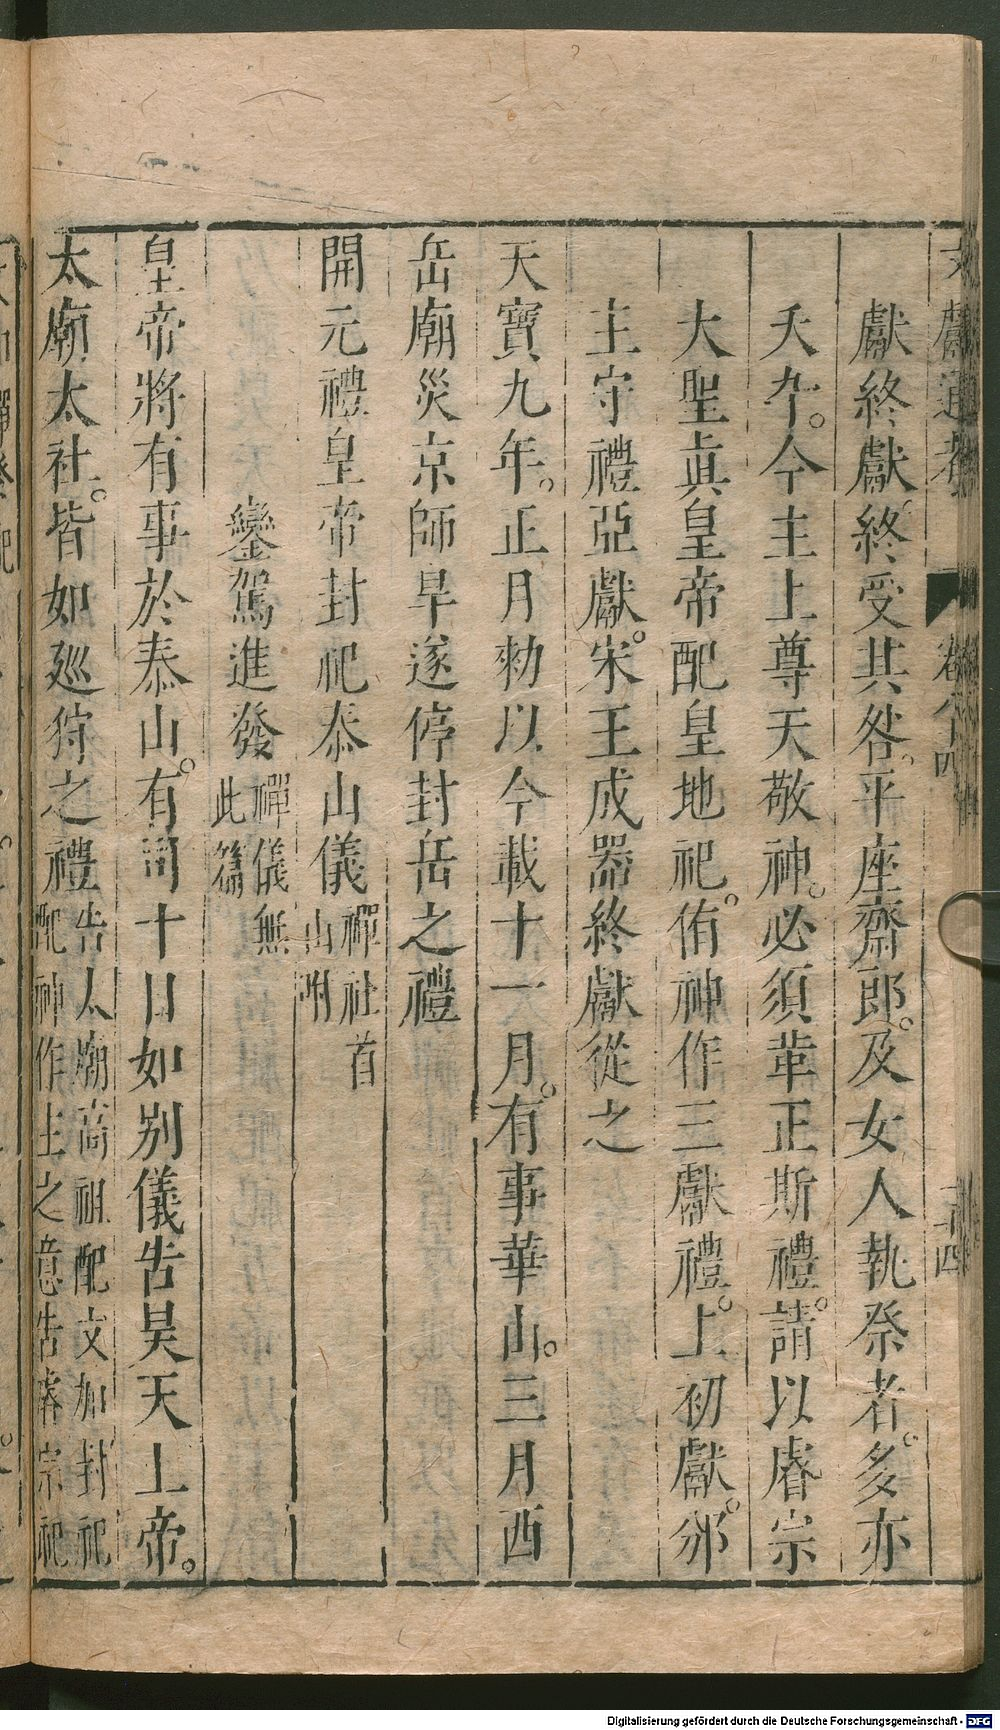 文獻通考 卷八十四 二十四
獻終獻。終受其咎。平座齋郎。及女人執祭者。多亦
夭夲。今主上尊天敬神。必須革正斯禮。請以睿宗
大聖眞皇帝配皇地祀。侑神作三獻禮。上初獻。邠
王守禮亞獻。宋王成器終獻從之
天寶九年。正月勑以今載十一月。有事華山。三月西
岳廟災京師旱遂停封岳之禮
開元禮皇帝封祀泰山儀禪社首山附
鑾駕進發禪儀無此篇
皇帝將有事於泰山。有司十日如别儀告昊天上帝。
太廟太社。皆如廵狩之禮告太廟高祖配文加封祀配神作主之意告睿宗祀
Digitalisierung gefördert durch die Deutsche Forschungsgemeinschaft - DFG